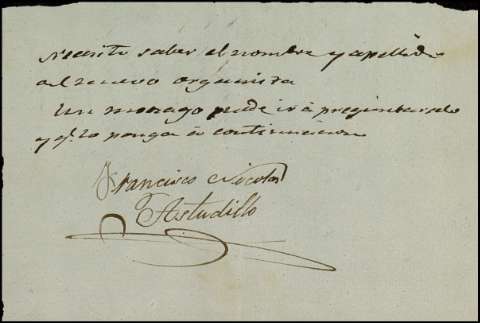 Necesito saber el nombre y apellido
del nuevo organista
Un monago puede ir à preguntarselo
y qe. lo ponga à continuacion
Francisco Nicolas
Astudillo